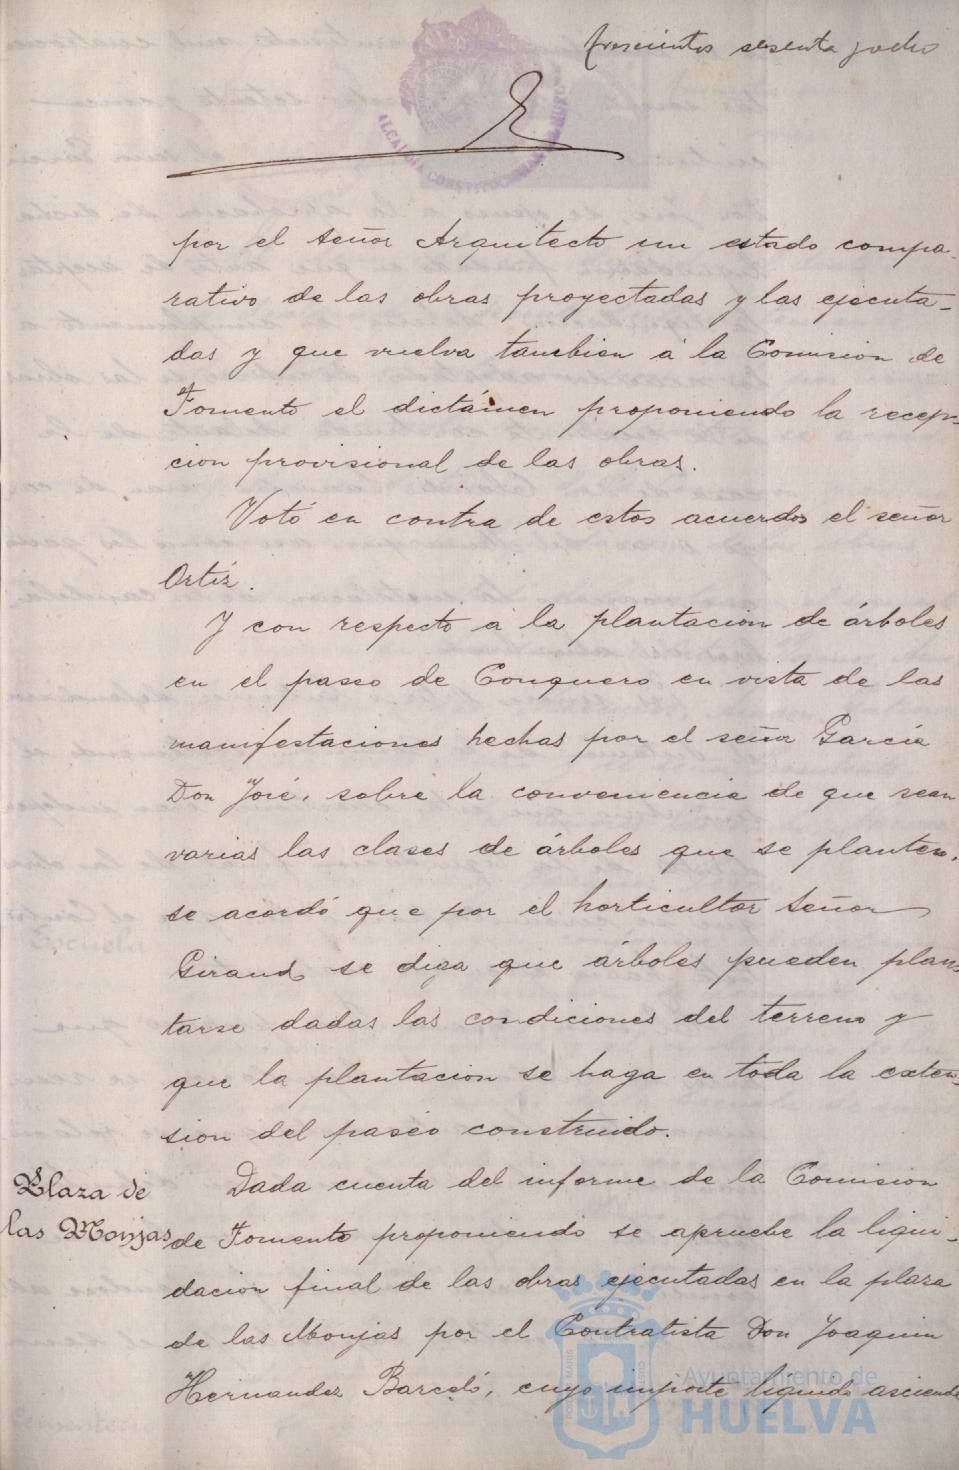 trescientos sesenta y ocho
ALCALDIA CONSTITUCIONAL DE HUELVA
por el señor Arquitecto un estado compa-
rativo de las obras proyectadas y las ejecuta-
das y que vuelva tambien á la Comision de
Fomento el dictámen proponiendo la recep-
cion provisional de las obras.
Votó en contra de estos acuerdos el señor
Ortiz.
Y con respecto á la plantacion de árboles
en el paseo de Conquero en vista de las
manifestaciones hechas por el señor García
Don José, sobre la conveniencia de que sean
varias las clases de árboles que se planten,
se acordó que por el horticultor señor
Giraud se diga que árboles pueden plan-
tarse dadas las condiciones del terreno y
que la plantacion se haga en toda la exten-
sion del paseo construido.
Plaza de
las Monjas
Dada cuenta del informe de la Comision
de Fomento proponiendo se apruebe la liqui-
dacion final de las obras ejecutadas en la plaza
de las Monjas por el Contratista Don Joaquin
Hernandez Barceló, cuyo importe líquido asciende
Ayuntamiento de
HUELVA